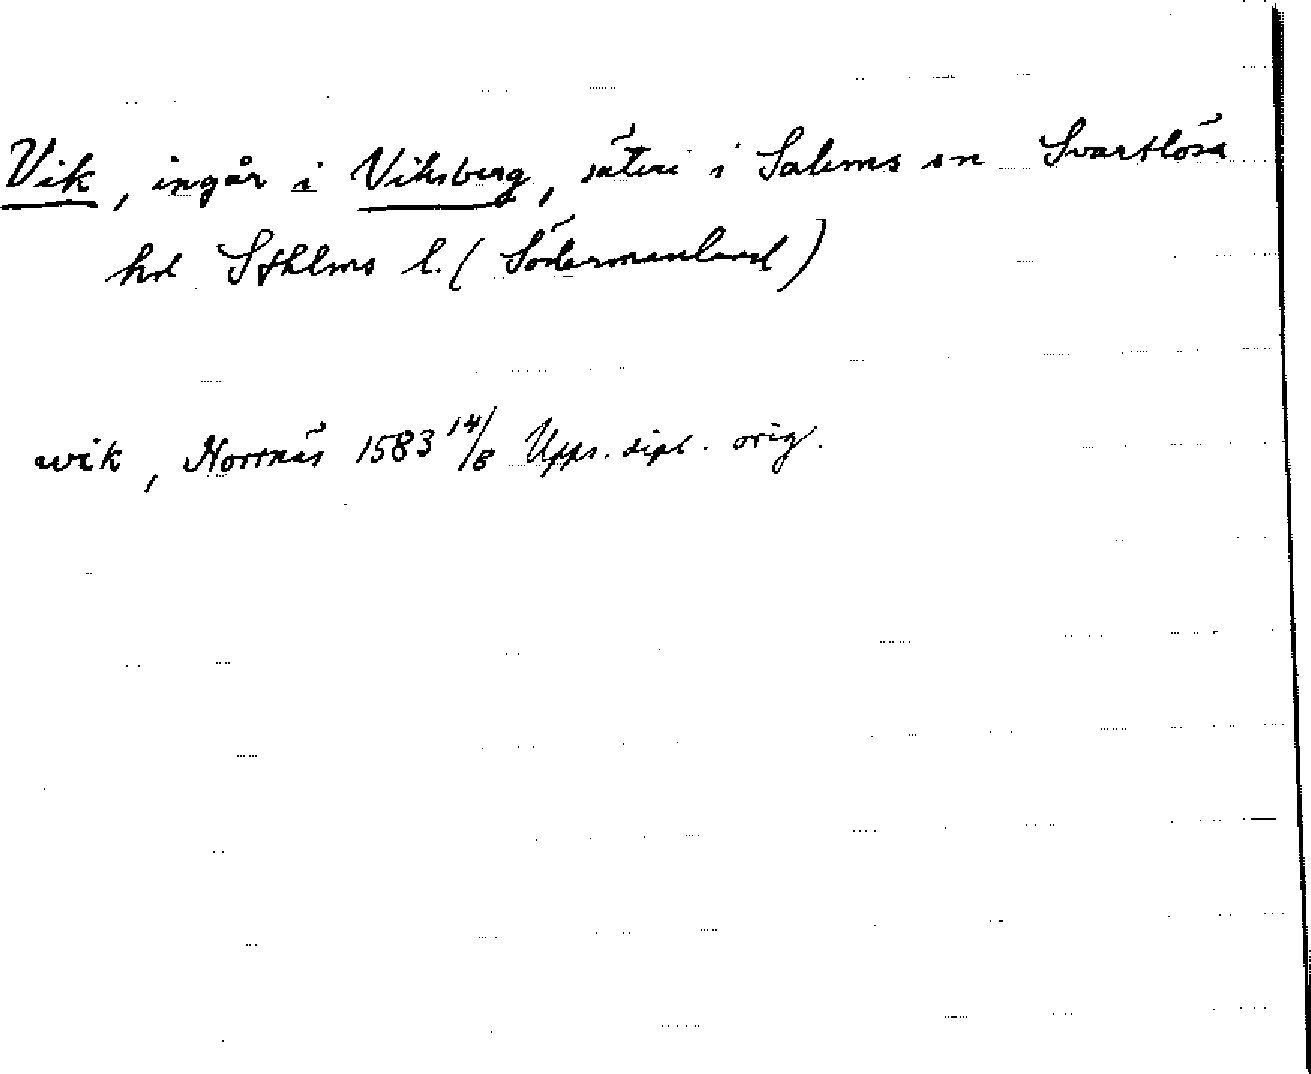 Vik, ingår i Viksberg, säteri i Salems sn Svartlösa
hd Sthlms l. (Södermanland)
wik, Norrnäs 1583 14/8 Upps. dipl. orig.